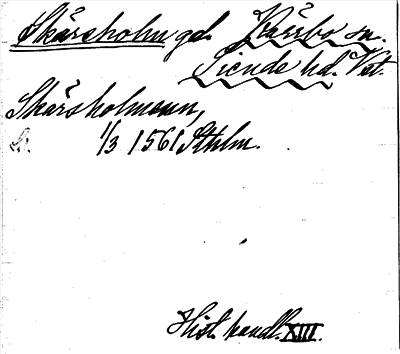 Skärsholm gd. Kärrbo sn.
Siende hd. Vst.
Skärsholmenn,
1/3 1561 Sthlm.
Hist. handl. XIII.